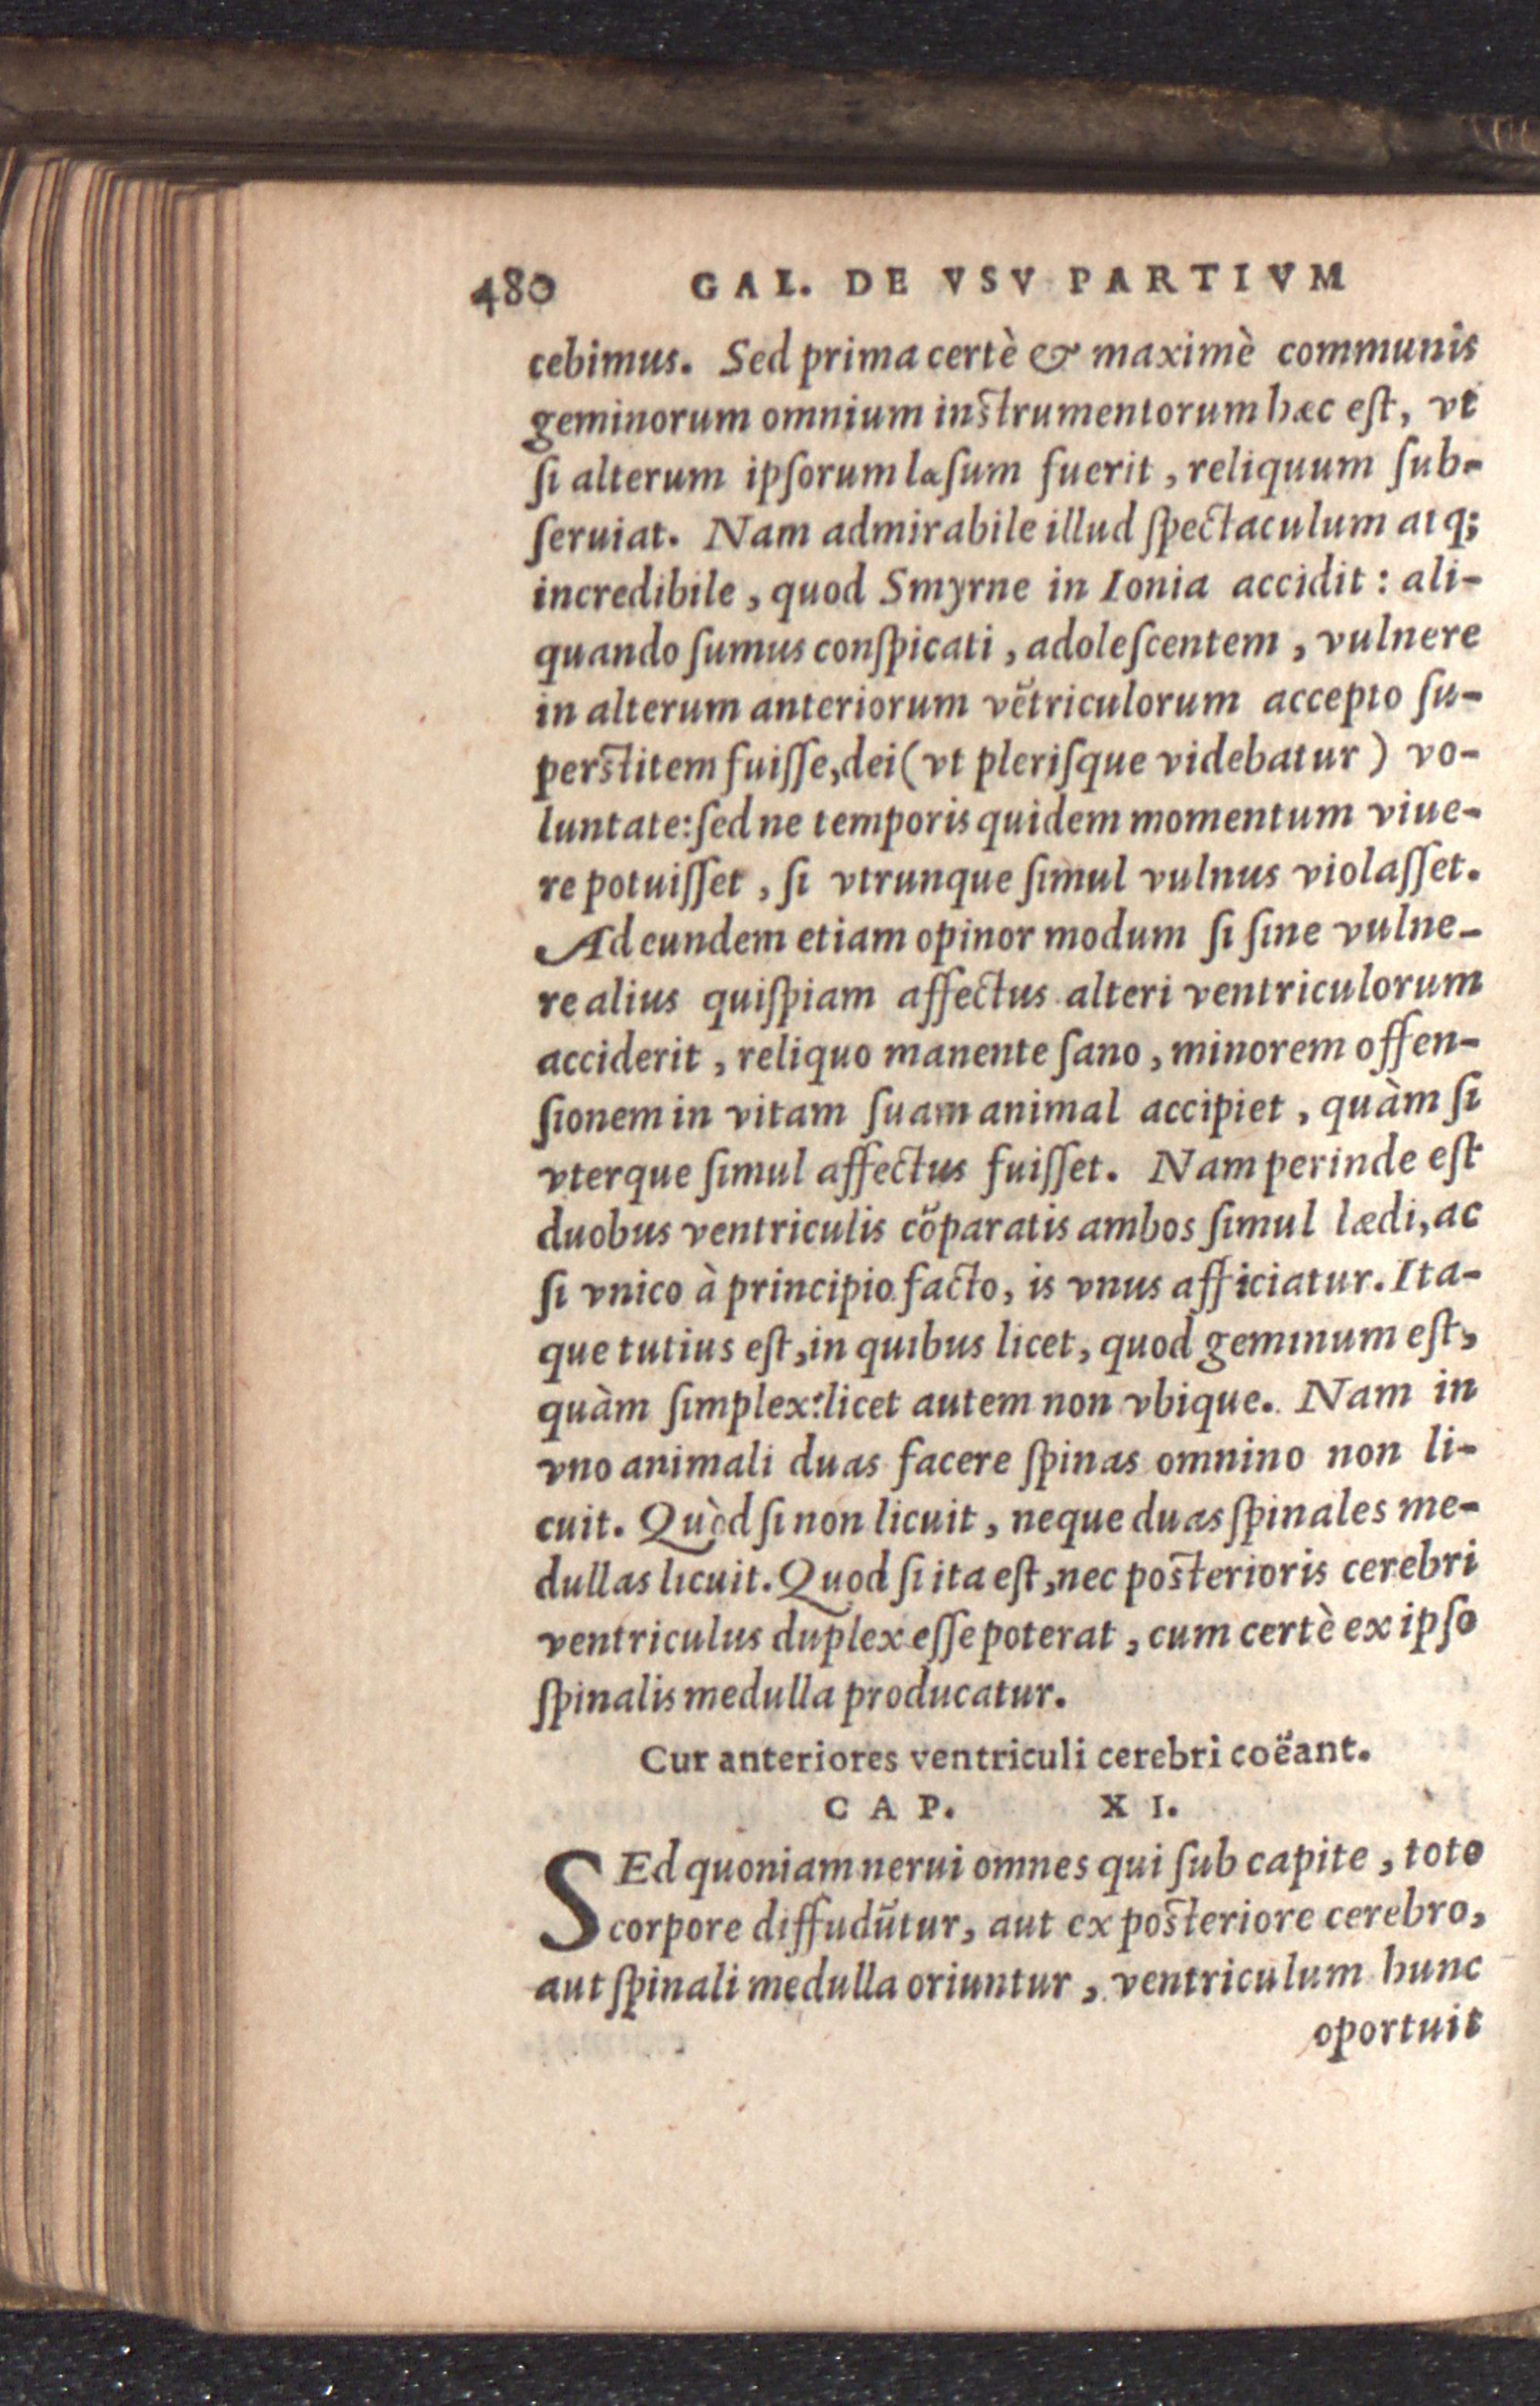 480 GAL. DE VSV PARTIVM
cebimus. Sed prima certè & maximè communis
geminorum omnium instrumentorum hæc eſt, vt
ſi alterum ipſorum læſum fuerit, reliquum ſub-
ſeruiat. Nam admirabile illud ſpectaculum atq;
incredibile, quod Smyrne in Ionia accidit: ali-
quando ſumus conſpicati, adoleſcentem, vulnere
in alterum anteriorum vẽtriculorum accepto ſu-
perstitem fuiſſe, dei (vt pleriſque videbatur) vo-
luntate: ſed ne temporis quidem momentum viue-
re potuiſſet, ſi vtrunque ſimul vulnus violaſſet.
Ad eundem etiam opinor modum ſi ſine vulne-
re alius quiſpiam affectus alteri ventriculorum
acciderit, reliquo manente ſano, minorem offen-
ſionem in vitam ſuam animal accipiet, quàm ſi
vterque ſimul affectus fuiſſet. Nam perinde eſt
duobus ventriculis cõparatis ambos ſimul lædi, ac
ſi vnico à principio facto, is vnus afficiatur. Ita-
que tutius eſt, in quibus licet, quod geminum eſt,
quàm ſimplex: licet autem non vbique. Nam in
vno animali duas facere ſpinas omnino non li-
cuit. Quòd ſi non licuit, neque duas ſpinales me-
dullas licuit. Quod ſi ita eſt, nec posterioris cerebri
ventriculus duplex eſſe poterat, cum certè ex ipſo
ſpinalis medulla producatur.
Cur anteriores ventriculi cerebri coëant.
CAP. XI.
SEd quoniam nerui omnes qui ſub capite, toto
corpore diffudũtur, aut ex posteriore cerebro,
aut ſpinali medulla oriuntur, ventriculum hunc
oportuit